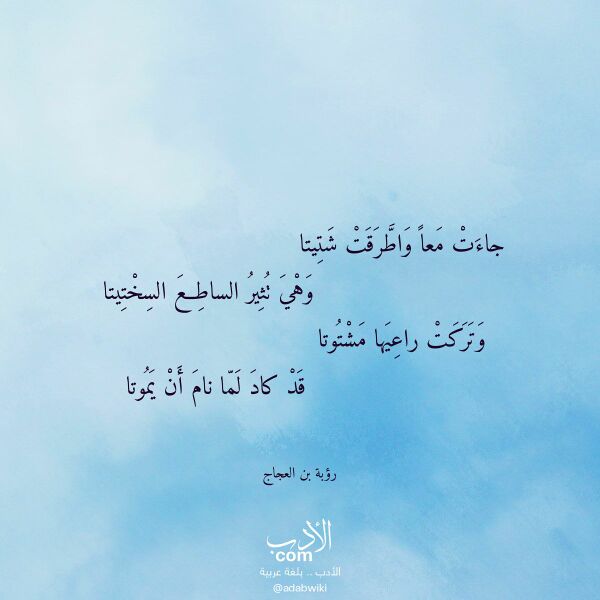 جاءَتْ مَعاً وَاطَّرَقَتْ شَتِيتا
وَهْيَ تُثِيرُ الساطِعَ السِخْتِيتا
وَتَرَكَتْ راعِيَها مَشْتُوتا
قَدْ كادَ لَمّا نامَ أَنْ يَمُوتا
رؤبة بن العجاج
الأدب
com
الأدب .. بلغة عربية
@adabwiki